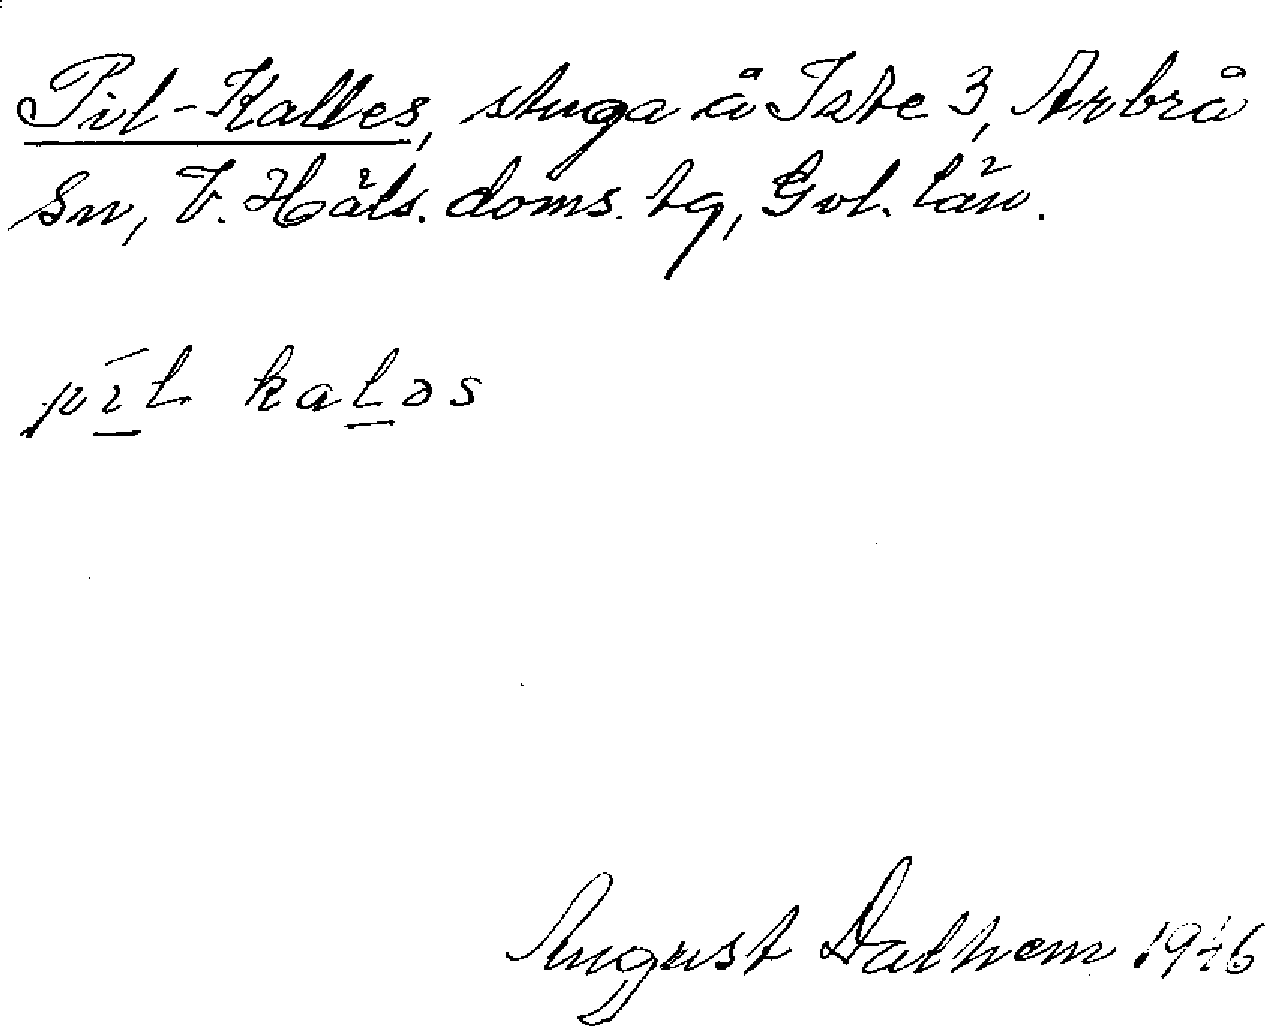 Pil-Kalles, stuga å Iste 3, Arbrå
Sn, V. Häls. doms. tg, Gvl. län.
pīl kaləs
August Dalhem 1946